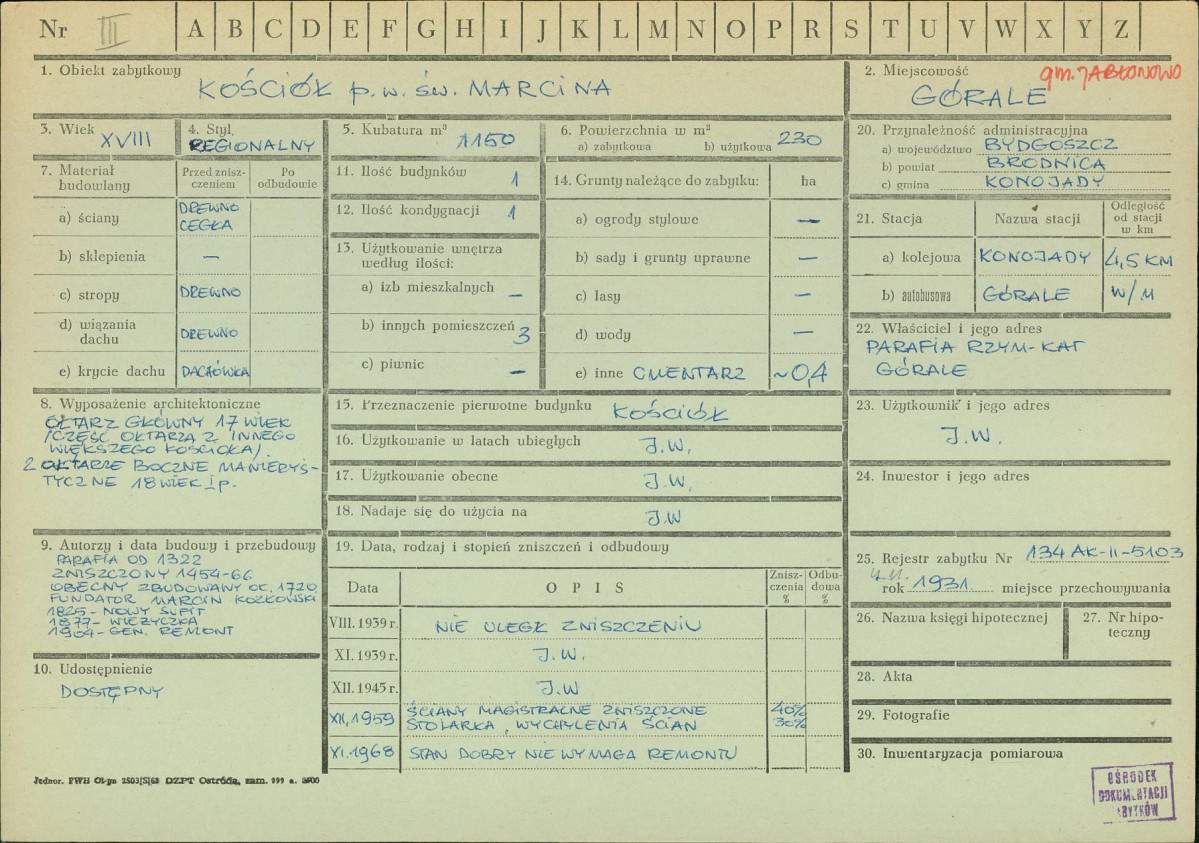 Nr III A B C D E F G H I J K L M N O P R S T U V W X Y Z
1. Obiekt zabytkowy
KOŚCIÓŁ p.w. św. MARCINA
2. Miejscowość
gm. JABŁONOWO
GÓRALE
3. Wiek
XVIII
4. Styl
REGIONALNY
5. Kubatura m³
1150
6. Powierzchnia w m²
a) zabytkowa b) użytkowa 230
20. Przynależność administracyjna
a) województwo BYDGOSZCZ
b) powiat BRODNICA
c) gmina KONOJADY
7. Materiał budowlany
Przed zniszczeniem
Po odbudowie
a) ściany DREWNO
CEGŁA
b) sklepienia —
c) stropy DREWNO
d) wiązania dachu DREWNO
e) krycie dachu DACHÓWKA
11. Ilość budynków 1
12. Ilość kondygnacji 1
13. Użytkowanie wnętrza
według ilości:
a) izb mieszkalnych —
b) innych pomieszczeń 3
c) piwnic —
14. Grunty należące do zabytku: ha
a) ogrody stylowe —
b) sady i grunty uprawne —
c) lasy —
d) wody —
e) inne CMENTARZ ~0,4
21. Stacja Nazwa stacji Odległość od stacji w km
a) kolejowa KONOJADY 4,5 KM
b) autobusowa GÓRALE W/M
22. Właściciel i jego adres
PARAFIA RZYM-KAT
GÓRALE
8. Wyposażenie architektoniczne
OŁTARZ GŁÓWNY 17 WIEK
/CZĘŚĆ OŁTARZA Z INNEGO
WIĘKSZEGO KOŚCIOŁA/.
2 OŁTARZE BOCZNE MANIERYS-
TYCZNE 18 WIEK I p.
15. Przeznaczenie pierwotne budynku KOŚCIÓŁ
16. Użytkowanie w latach ubiegłych J.W.
17. Użytkowanie obecne J.W.
18. Nadaje się do użycia na J.W
23. Użytkownik i jego adres
J.W.
24. Inwestor i jego adres
9. Autorzy i data budowy i przebudowy
PARAFIA OD 1322
ZNISZCZONY 1454-66
OBECNY ZBUDOWANY OK. 1720
FUNDATOR MARCIN KOZŁOWSKI
1825 - NOWY SUFIT
1877 - WIEŻYCZKA
1904 - GEN. REMONT
10. Udostępnienie
DOSTĘPNY
19. Data, rodzaj i stopień zniszczeń i odbudowy
Data OPIS Zniszczenia % Odbudowa %
VIII. 1939 r. NIE ULEGŁ ZNISZCZENIU
XI. 1939 r. J.W.
XII. 1945 r. J.W
XII, 1959 ŚCIANY MAGISTRALNE ZNISZCZONE 40%
STOLARKA, WYCHYLENIA ŚCIAN 30%
XI. 1968 STAN DOBRY NIE WYMAGA REMONTU
25. Rejestr zabytku Nr 134 AK-II-5103
rok 1931 miejsce przechowywania
26. Nazwa księgi hipotecznej
27. Nr hipoteczny
28. Akta
29. Fotografie
30. Inwentaryzacja pomiarowa
OŚRODEK
DOKUMENTACJI
ZABYTKÓW